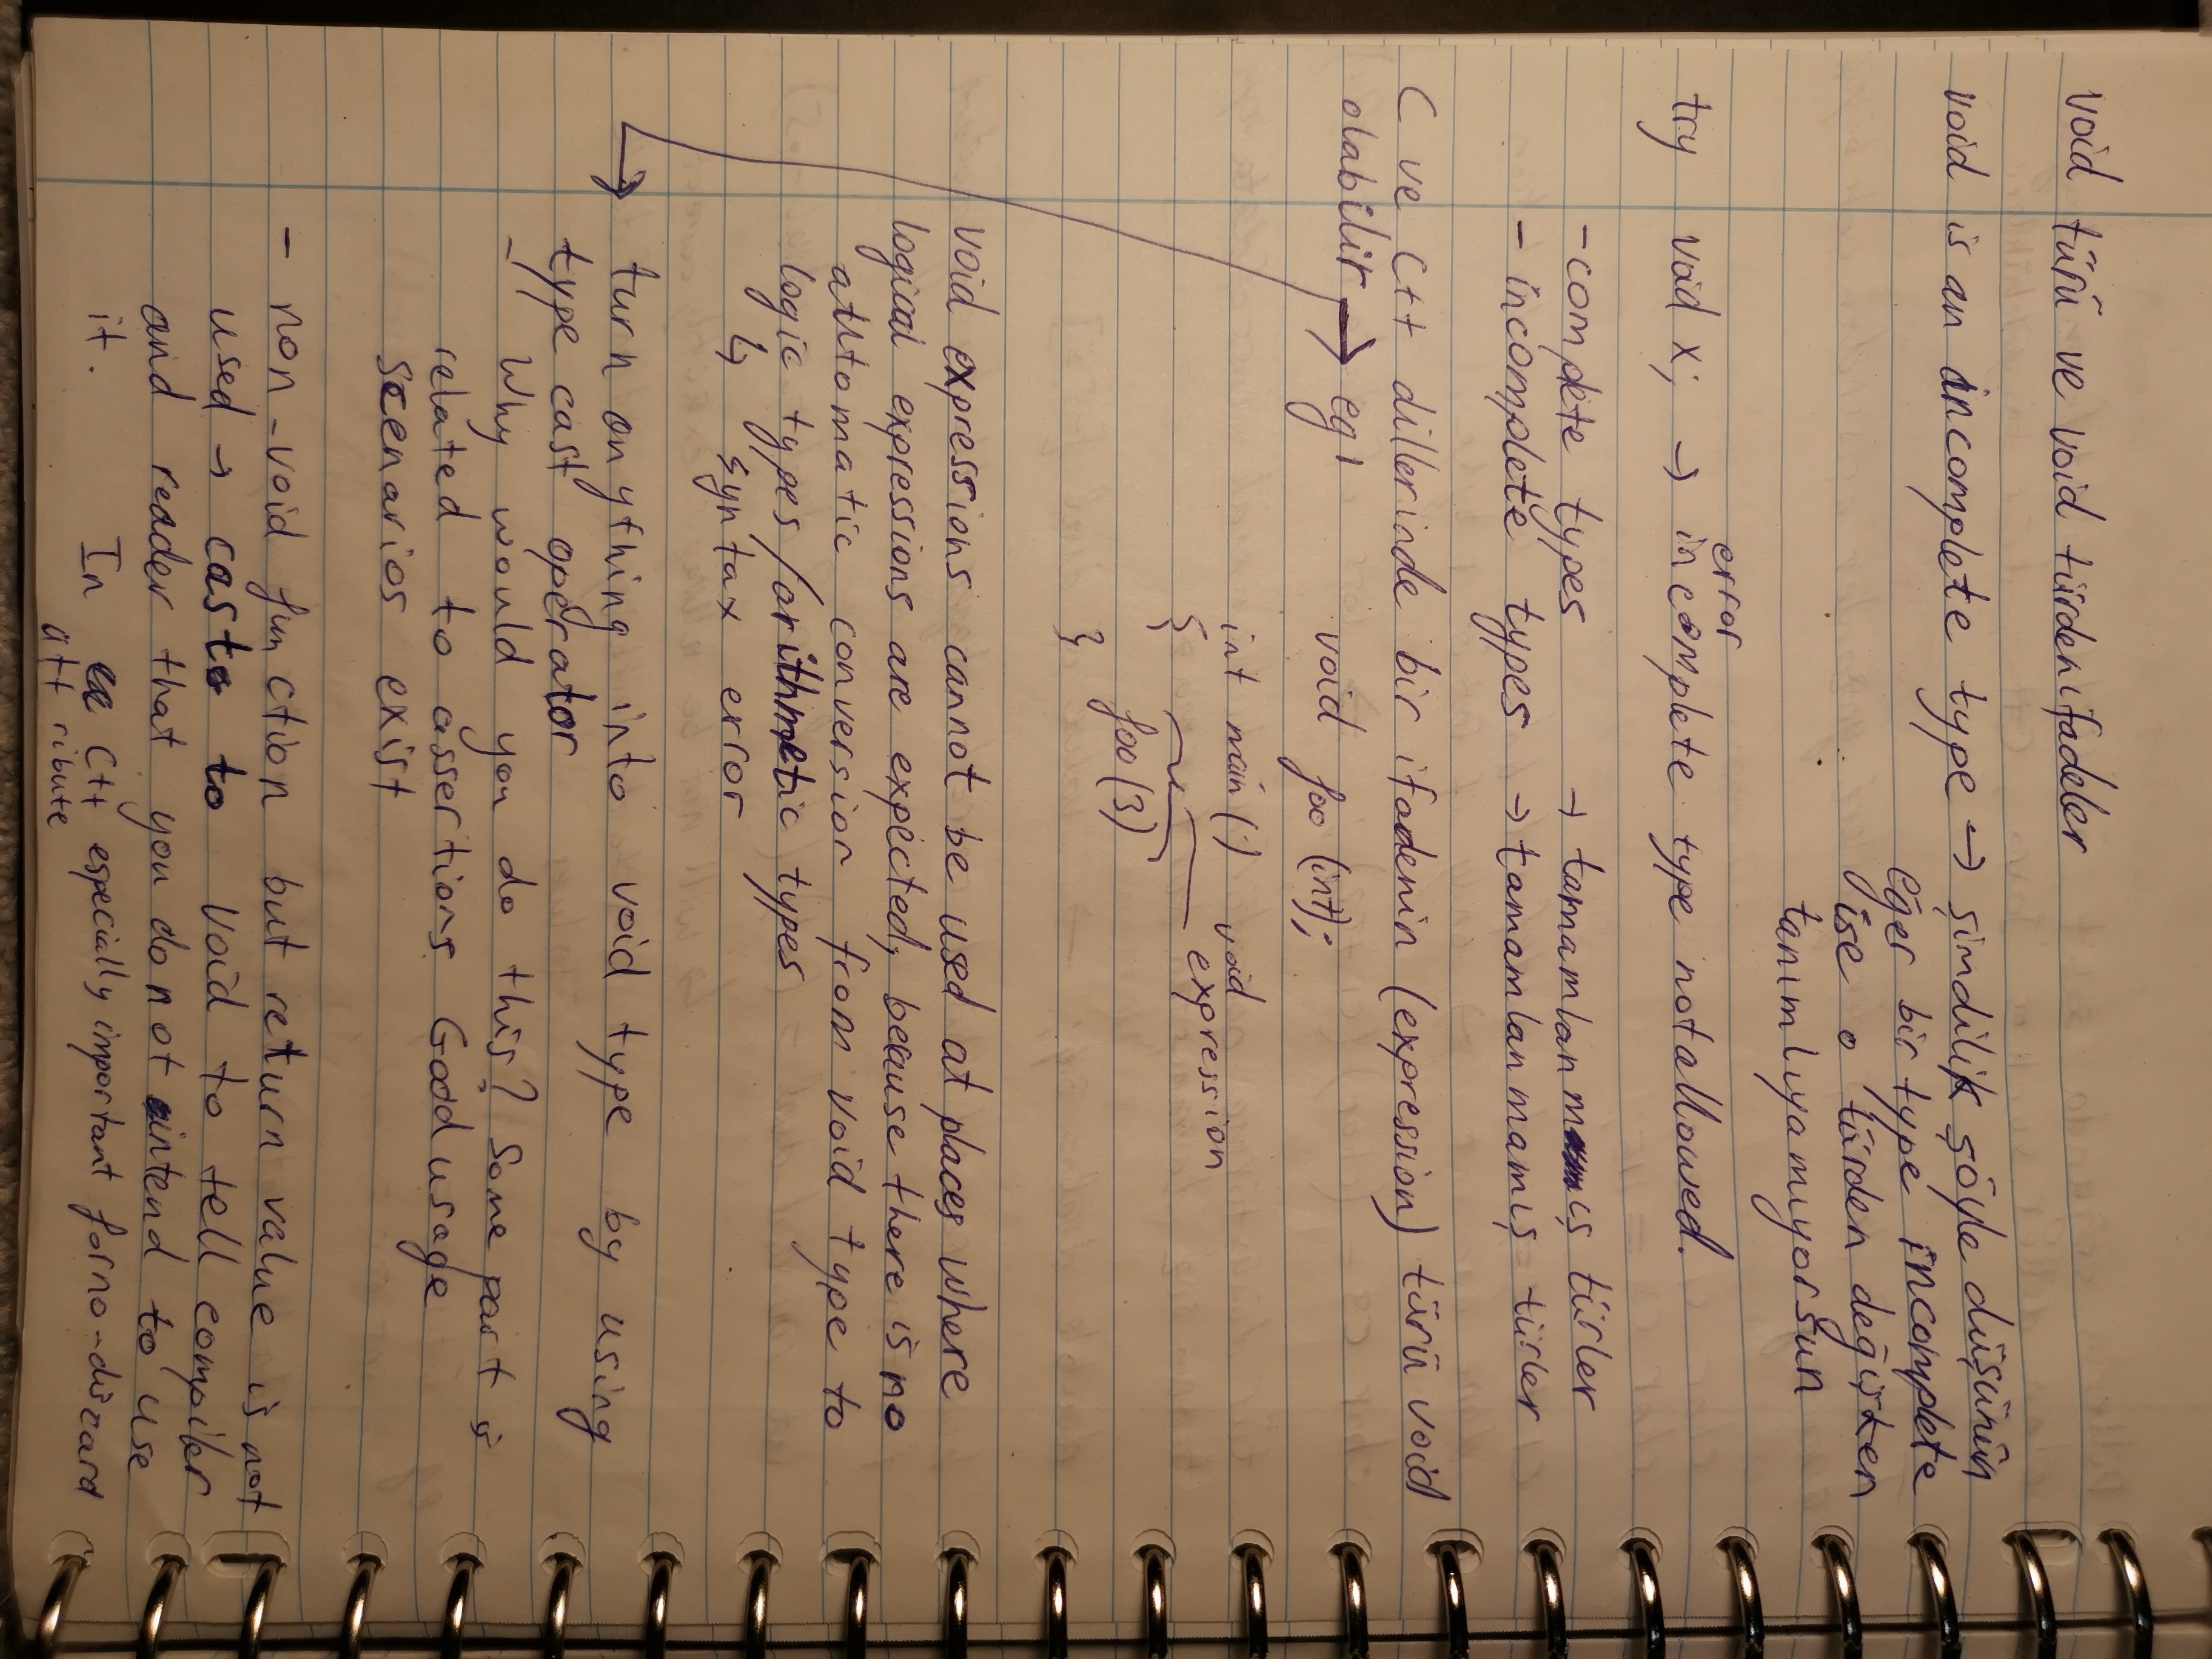 void türü ve void türden ifadeler
void is an incomplete type → şimdilik şöyle düşünün
eğer bir type incomplete
ise o türden değişken
tanımlıyamıyorsun
error
try void x; → incomplete type not allowed.
- complete types → tamamlanmış türler
- incomplete types → tamamlanmamış türler
C ve C++ dillerinde bir ifadenin (expression) türü void
olabilir → eg1 void foo (int);
int main () void
{ expression
foo (3)
}
void expressions cannot be used at places where
logical expressions are expected, because there is no
automatic conversion from void type to
logic types / arithmetic types
↳ syntax error
→ turn anything into void type by using
type cast operator
- Why would you do this? Some part is
related to assertions. Good usage
scenarios exist
- non-void function but return value is not
used → cast to void to tell compiler
and reader that you do not intend to use
it. In C++ especially important for no-discard
attribute